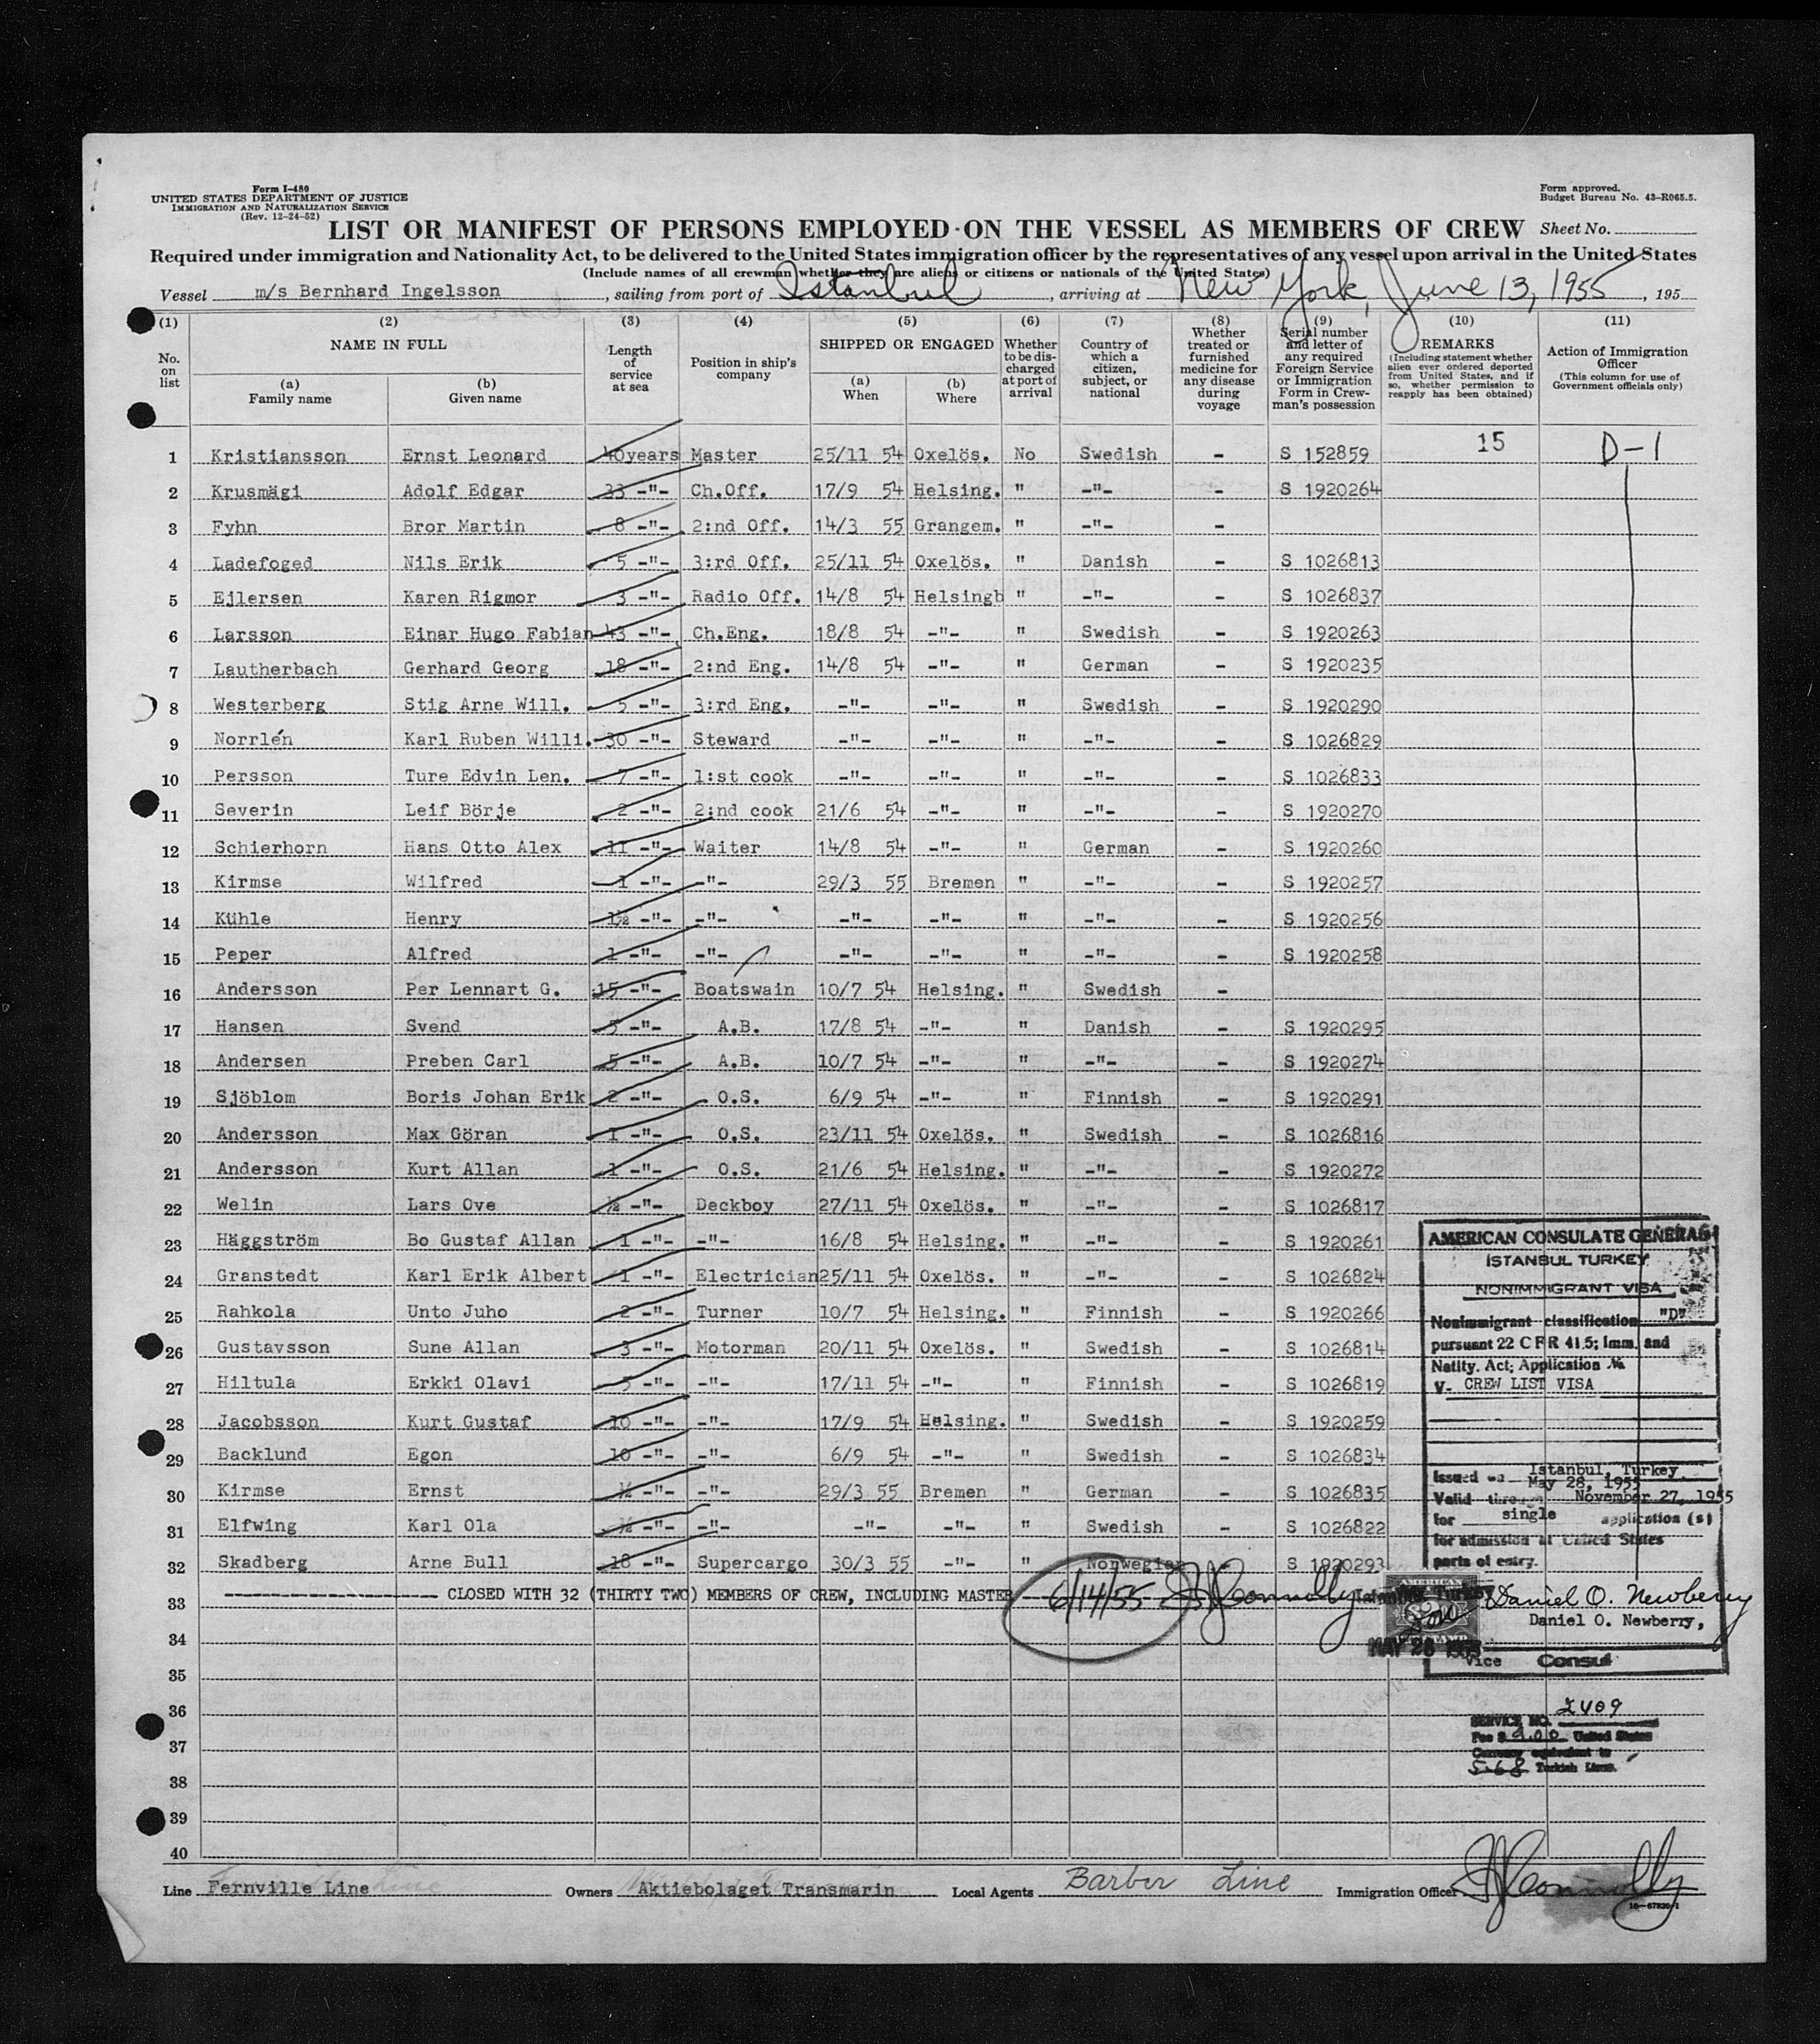 Form I-480
UNITED STATES DEPARTMENT OF JUSTICE
IMMIGRATION AND NATURALIZATION SERVICE
(Rev. 12-24-52)
Form approved.
Budget Bureau No. 43-R065.5.
LIST OR MANIFEST OF PERSONS EMPLOYED ON THE VESSEL AS MEMBERS OF CREW Sheet No.
Required under immigration and Nationality Act, to be delivered to the United States immigration officer by the representatives of any vessel upon arrival in the United States
(Include names of all crewman whether they are aliens or citizens or nationals of the United States)
Vessel m/s Bernhard Ingelsson, sailing from port of Istanbul, arriving at New York, June 13, 1955, 195
(1) (2) (3) (4) (5) (6) (7) (8) (9) (10) (11)
No. on list
NAME IN FULL
(a) Family name
(b) Given name
Length of service at sea
Position in ship's company
SHIPPED OR ENGAGED
(a) When
(b) Where
Whether to be discharged at port of arrival
Country of which a citizen, subject, or national
Whether treated or furnished medicine for any disease during voyage
Serial number and letter of any required Foreign Service or Immigration Form in Crewman's possession
REMARKS
(Including statement whether alien ever ordered deported from United States, and if so, whether permission to reapply has been obtained)
Action of Immigration Officer
(This column for use of Government officials only)
1 Kristiansson Ernst Leonard 40 years Master 25/11 54 Oxelös. No Swedish - S 152859 15 D-1
2 Krusmägi Adolf Edgar 33 -"- Ch.Off. 17/9 54 Helsing. " -"- - S 1920264
3 Fyhn Bror Martin 8 -"- 2:nd Off. 14/3 55 Grangem. " -"- -
4 Ladefoged Nils Erik 5 -"- 3:rd Off. 25/11 54 Oxelös. " Danish - S 1026813
5 Ejlersen Karen Rigmor 3 -"- Radio Off. 14/8 54 Helsingb " -"- - S 1026837
6 Larsson Einar Hugo Fabian 43 -"- Ch.Eng. 18/8 54 -"- " Swedish - S 1920263
7 Lautherbach Gerhard Georg 18 -"- 2:nd Eng. 14/8 54 -"- " German - S 1920235
8 Westerberg Stig Arne Will. 5 -"- 3:rd Eng. -"- -"- " Swedish - S 1920290
9 Norrlén Karl Ruben Willi. 30 -"- Steward -"- -"- " -"- - S 1026829
10 Persson Ture Edvin Len. 7 -"- 1:st cook -"- -"- " -"- - S 1026833
11 Severin Leif Börje 2 -"- 2:nd cook 21/6 54 -"- " -"- - S 1920270
12 Schierhorn Hans Otto Alex 11 -"- Waiter 14/8 54 -"- " German - S 1920260
13 Kirmse Wilfred 1 -"- -"- 29/3 55 Bremen " -"- - S 1920257
14 Kühle Henry 1½ -"- -"- -"- -"- " -"- - S 1920256
15 Peper Alfred 1 -"- -"- -"- -"- " -"- - S 1920258
16 Andersson Per Lennart G. 15 -"- Boatswain 10/7 54 Helsing. " Swedish -
17 Hansen Svend 5 -"- A.B. 17/8 54 -"- " Danish - S 1920295
18 Andersen Preben Carl 5 -"- A.B. 10/7 54 -"- " -"- - S 1920274
19 Sjöblom Boris Johan Erik 2 -"- O.S. 6/9 54 -"- " Finnish - S 1920291
20 Andersson Max Göran 1 -"- O.S. 23/11 54 Oxelös. " Swedish - S 1026816
21 Andersson Kurt Allan 1 -"- O.S. 21/6 54 Helsing. " -"- - S 1920272
22 Welin Lars Ove ½ -"- Deckboy 27/11 54 Oxelös. " -"- - S 1026817
23 Häggström Bo Gustaf Allan 1 -"- -"- 16/8 54 Helsing. " -"- - S 1920261
24 Granstedt Karl Erik Albert 1 -"- Electrician 25/11 54 Oxelös. " -"- - S 1026824
25 Rahkola Unto Juho 2 -"- Turner 10/7 54 Helsing. " Finnish - S 1920266
26 Gustavsson Sune Allan 3 -"- Motorman 20/11 54 Oxelös. " Swedish - S 1026814
27 Hiltula Erkki Olavi 5 -"- -"- 17/11 54 -"- " Finnish - S 1026819
28 Jacobsson Kurt Gustaf 10 -"- -"- 17/9 54 Helsing. " Swedish - S 1920259
29 Backlund Egon 10 -"- -"- 6/9 54 -"- " Swedish - S 1026834
30 Kirmse Ernst ½ -"- -"- 29/3 55 Bremen " German - S 1026835
31 Elfwing Karl Ola ½ -"- -"- -"- -"- " Swedish - S 1026822
32 Skadberg Arne Bull 18 -"- Supercargo 30/3 55 -"- " Norwegian S 1920293
33 CLOSED WITH 32 (THIRTY TWO) MEMBERS OF CREW, INCLUDING MASTER 6/14/55 JJConnolly
34
35
36
37
38
39
40
AMERICAN CONSULATE GENERAL
ISTANBUL TURKEY
NONIMMIGRANT VISA
Nonimmigrant classification "D"
pursuant 22 C F R 41.5; Imm. and
Natlty. Act; Application No
V- CREW LIST VISA
Issued on Istanbul, Turkey
May 28, 1955
Valid through November 27, 1955
for single application (s)
for admission at United States
ports of entry.
Istanbul, Turkey
Daniel O. Newberry
Daniel O. Newberry,
MAY 28 1955
Vice Consul
SERVICE NO. 2409
Fee $ 2.00 United States
Currency equivalent to
5.68 Turkish Liras.
Line Fernville Line Owners Aktiebolaget Transmarin Local Agents Barber Line Immigration Officer JJConnolly
16-67820-1